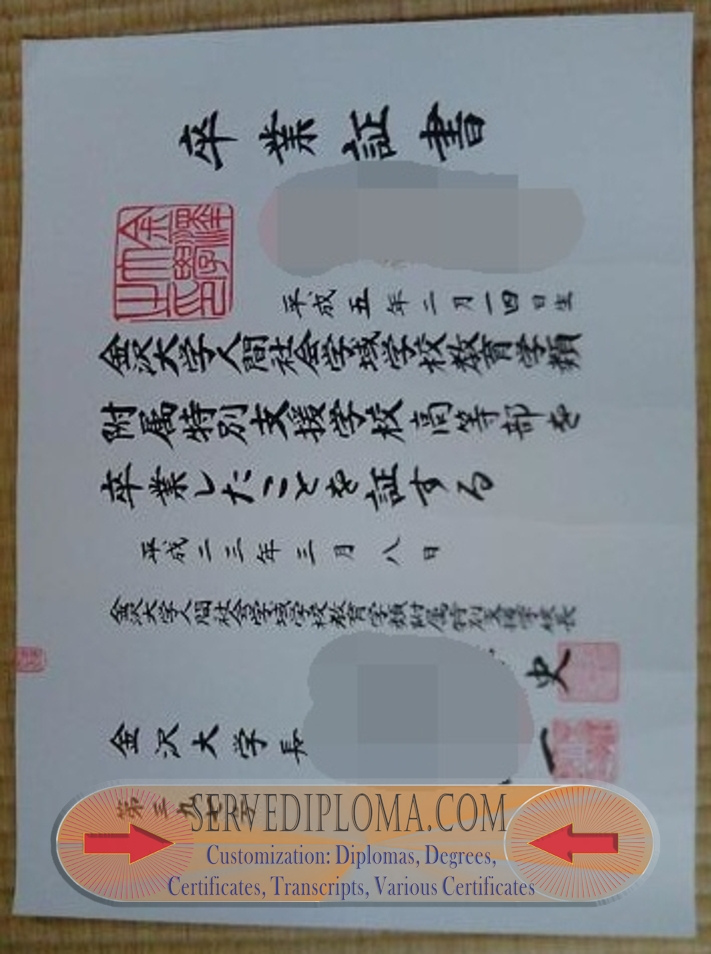 卒業証書
金澤大學之印
平成五年二月一四日生
金沢大学人間社会学域学校教育学類
附属特別支援学校高等部を
卒業したことを証する
平成二三年三月八日
金沢大学人間社会学域学校教育学類附属特別支援学校長
史
金沢大学長
一
第三九七号
SERVEDIPLOMA.COM
Customization: Diplomas, Degrees,
Certificates, Transcripts, Various Certificates